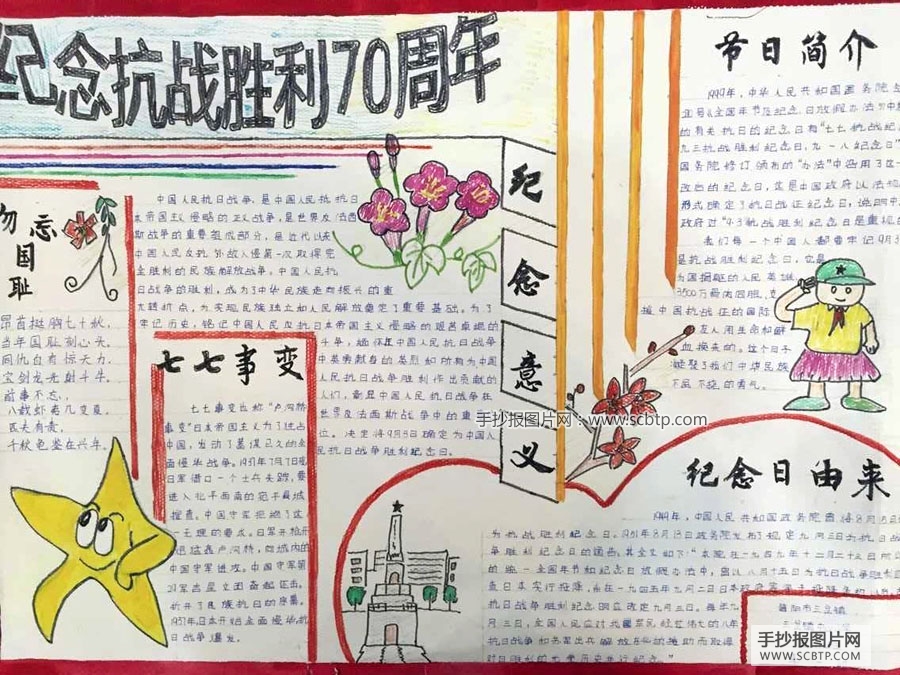 纪念抗战胜利70周年
勿忘
国
耻
昂首挺胸七十秋，
当年国耻刻心头。
同仇自有惊天力，
宝剑龙光射斗牛。
前事不忘，
千秋龟鉴在六年。
中国人民抗日战争，是中国人民抵抗日
本帝国主义侵略的正义战争，是世界反法西
斯战争的重要组成部分，是近代以来
中国人民反抗外敌入侵第一次取得完
全胜利的民族解放战争。中国人民抗
日战争的胜利，成为了中华民族走向振兴的重
大转折点，为实现民族独立和人民解放奠定了重要基础。为了
牢记历史，铭记中国人民反抗日本帝国主义侵略的艰苦卓绝的
斗争，缅怀在中国人民抗日战争
中英勇献身的英烈和所有为中国
人民抗日战争胜利作出贡献的
人们，彰显中国人民抗日战争在
世界反法西斯战争中的重
位。决定将9月3日确定为中国人
民抗日战争胜利纪念日。
七七事变
七七事变也称"卢沟桥
事变"日本帝国主义为了独占
中国，发动了蓄谋已久的全
面侵华战争。1937年7月7日夜
日军借口一个士兵失踪，要
进入北平西南的宛平县城
搜查。中国守军拒绝了这
一无理的要求。日军开枪开
炮猛轰卢沟桥，向城内的
中国守军进攻。中国守军第
29军吉星文团奋起还击。
掀开了民族抗日的序幕。
1937年，日本开始全面侵华，抗
日战争爆发。
纪
念
意
义
手抄报图片网：www.scbtp.com
节日简介
1999年，中华人民共和国国务院
的有关抗日的纪念日有"七七抗战纪
九三抗战胜利纪念日，九一八纪念日"
国务院修订颁布的"办法"中沿用了这一
改出的纪念日，这是中国政府以法规
形式确定了抗日战征纪念日，说明中
政府对"9.3抗战胜利纪念日是重视的
我们每一个中国人都要牢记9月3
是抗战胜利纪念日，它是
为国捐躯的人民英雄
3500万
援中国抗战的国际
友人用生命和鲜
血换来的。这个日子
凝聚了我们中华民族
不屈不挠的勇气。
纪念日由来
1949年，中国人民共和国政务院曾将8月15日
为抗战胜利纪念日。1951年8月13日政务院发布了规定九月三日为抗日战
争胜利纪念日的通告。其全文如下："本院在一九四九年十二月二十三日所
的统一全国年节和纪念日放假办法中，曾以八月十五日为抗日战争胜利
抗日战争胜利纪念日应改定九月三日。每年九
月三日，全国人民应对我国军民经过伟大的八年
手抄报图片网
WWW.SCBTP.COM